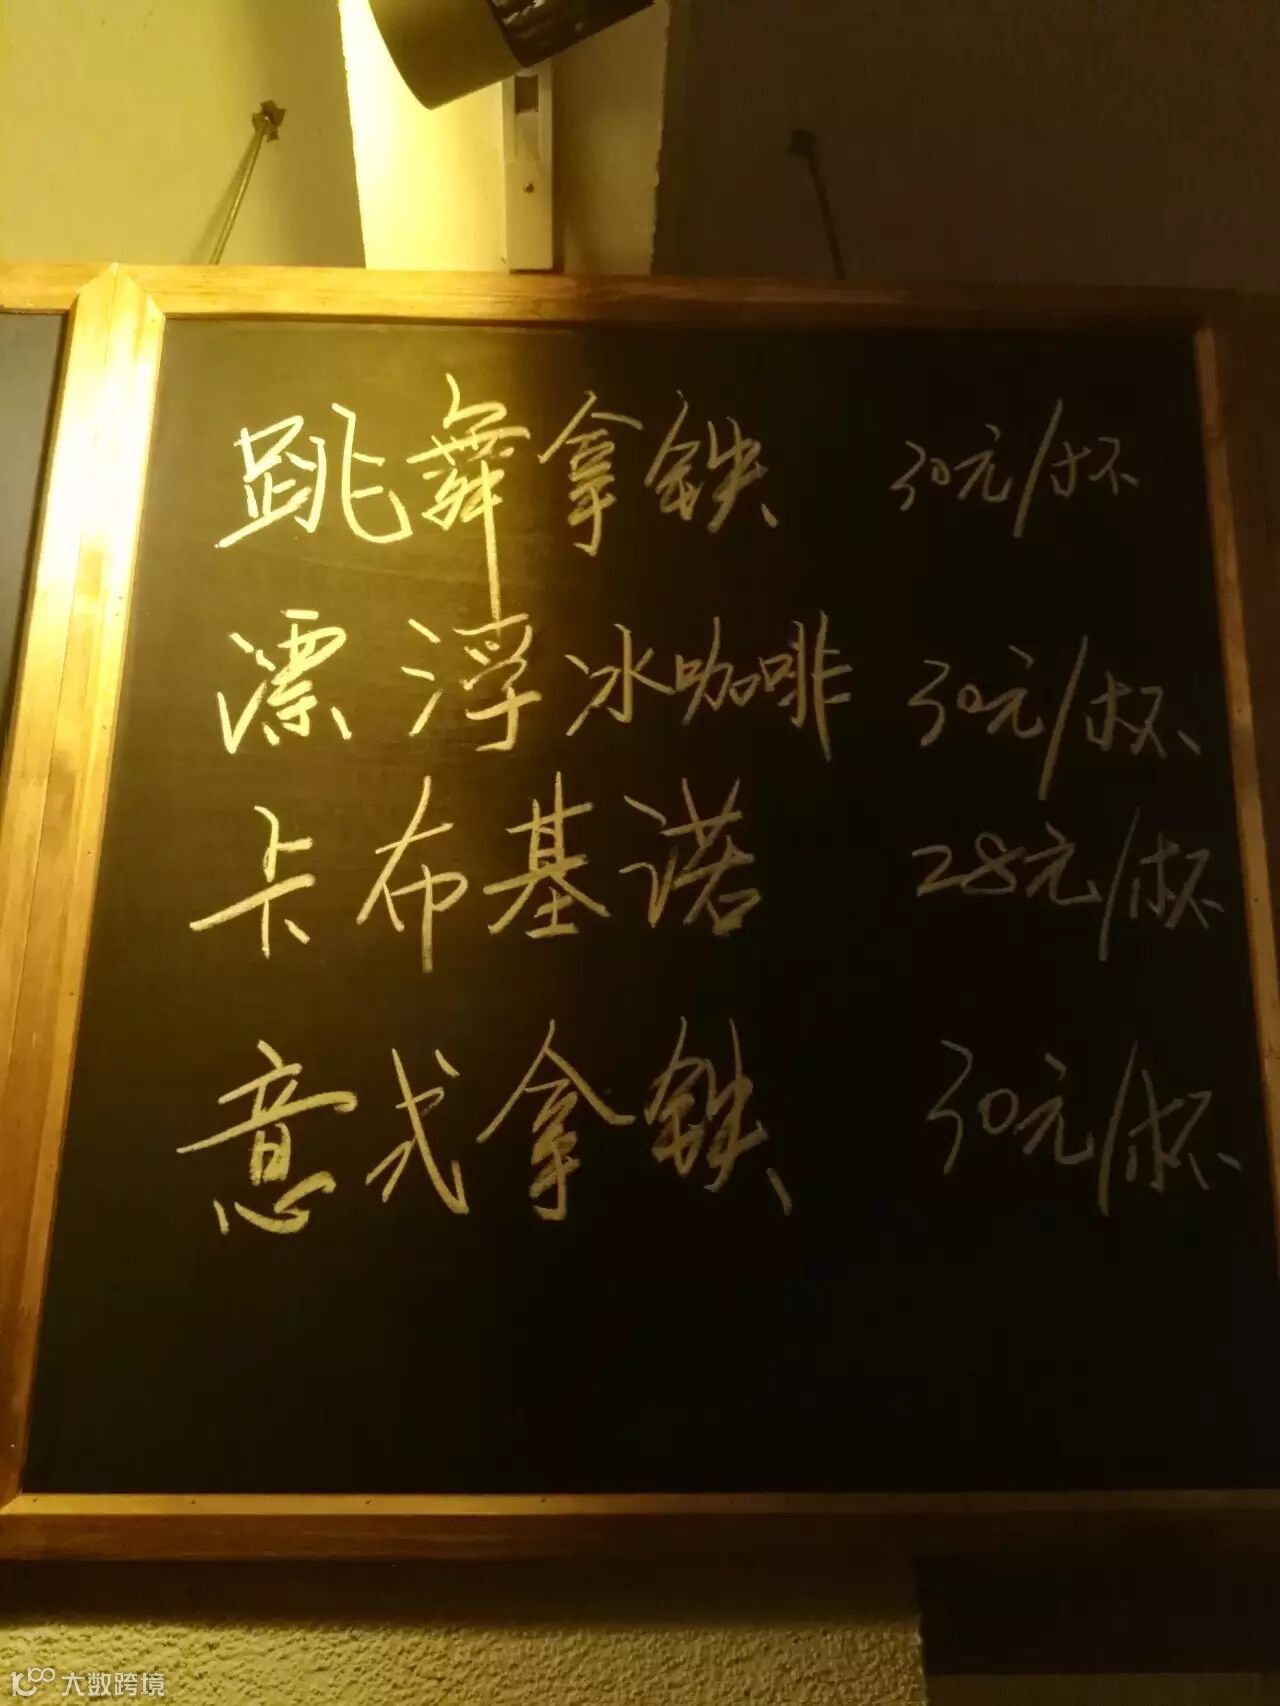 跳舞拿铁 30元/杯
漂浮冰咖啡 30元/杯
卡布基诺 28元/杯
意式拿铁 30元/杯
大数跨境